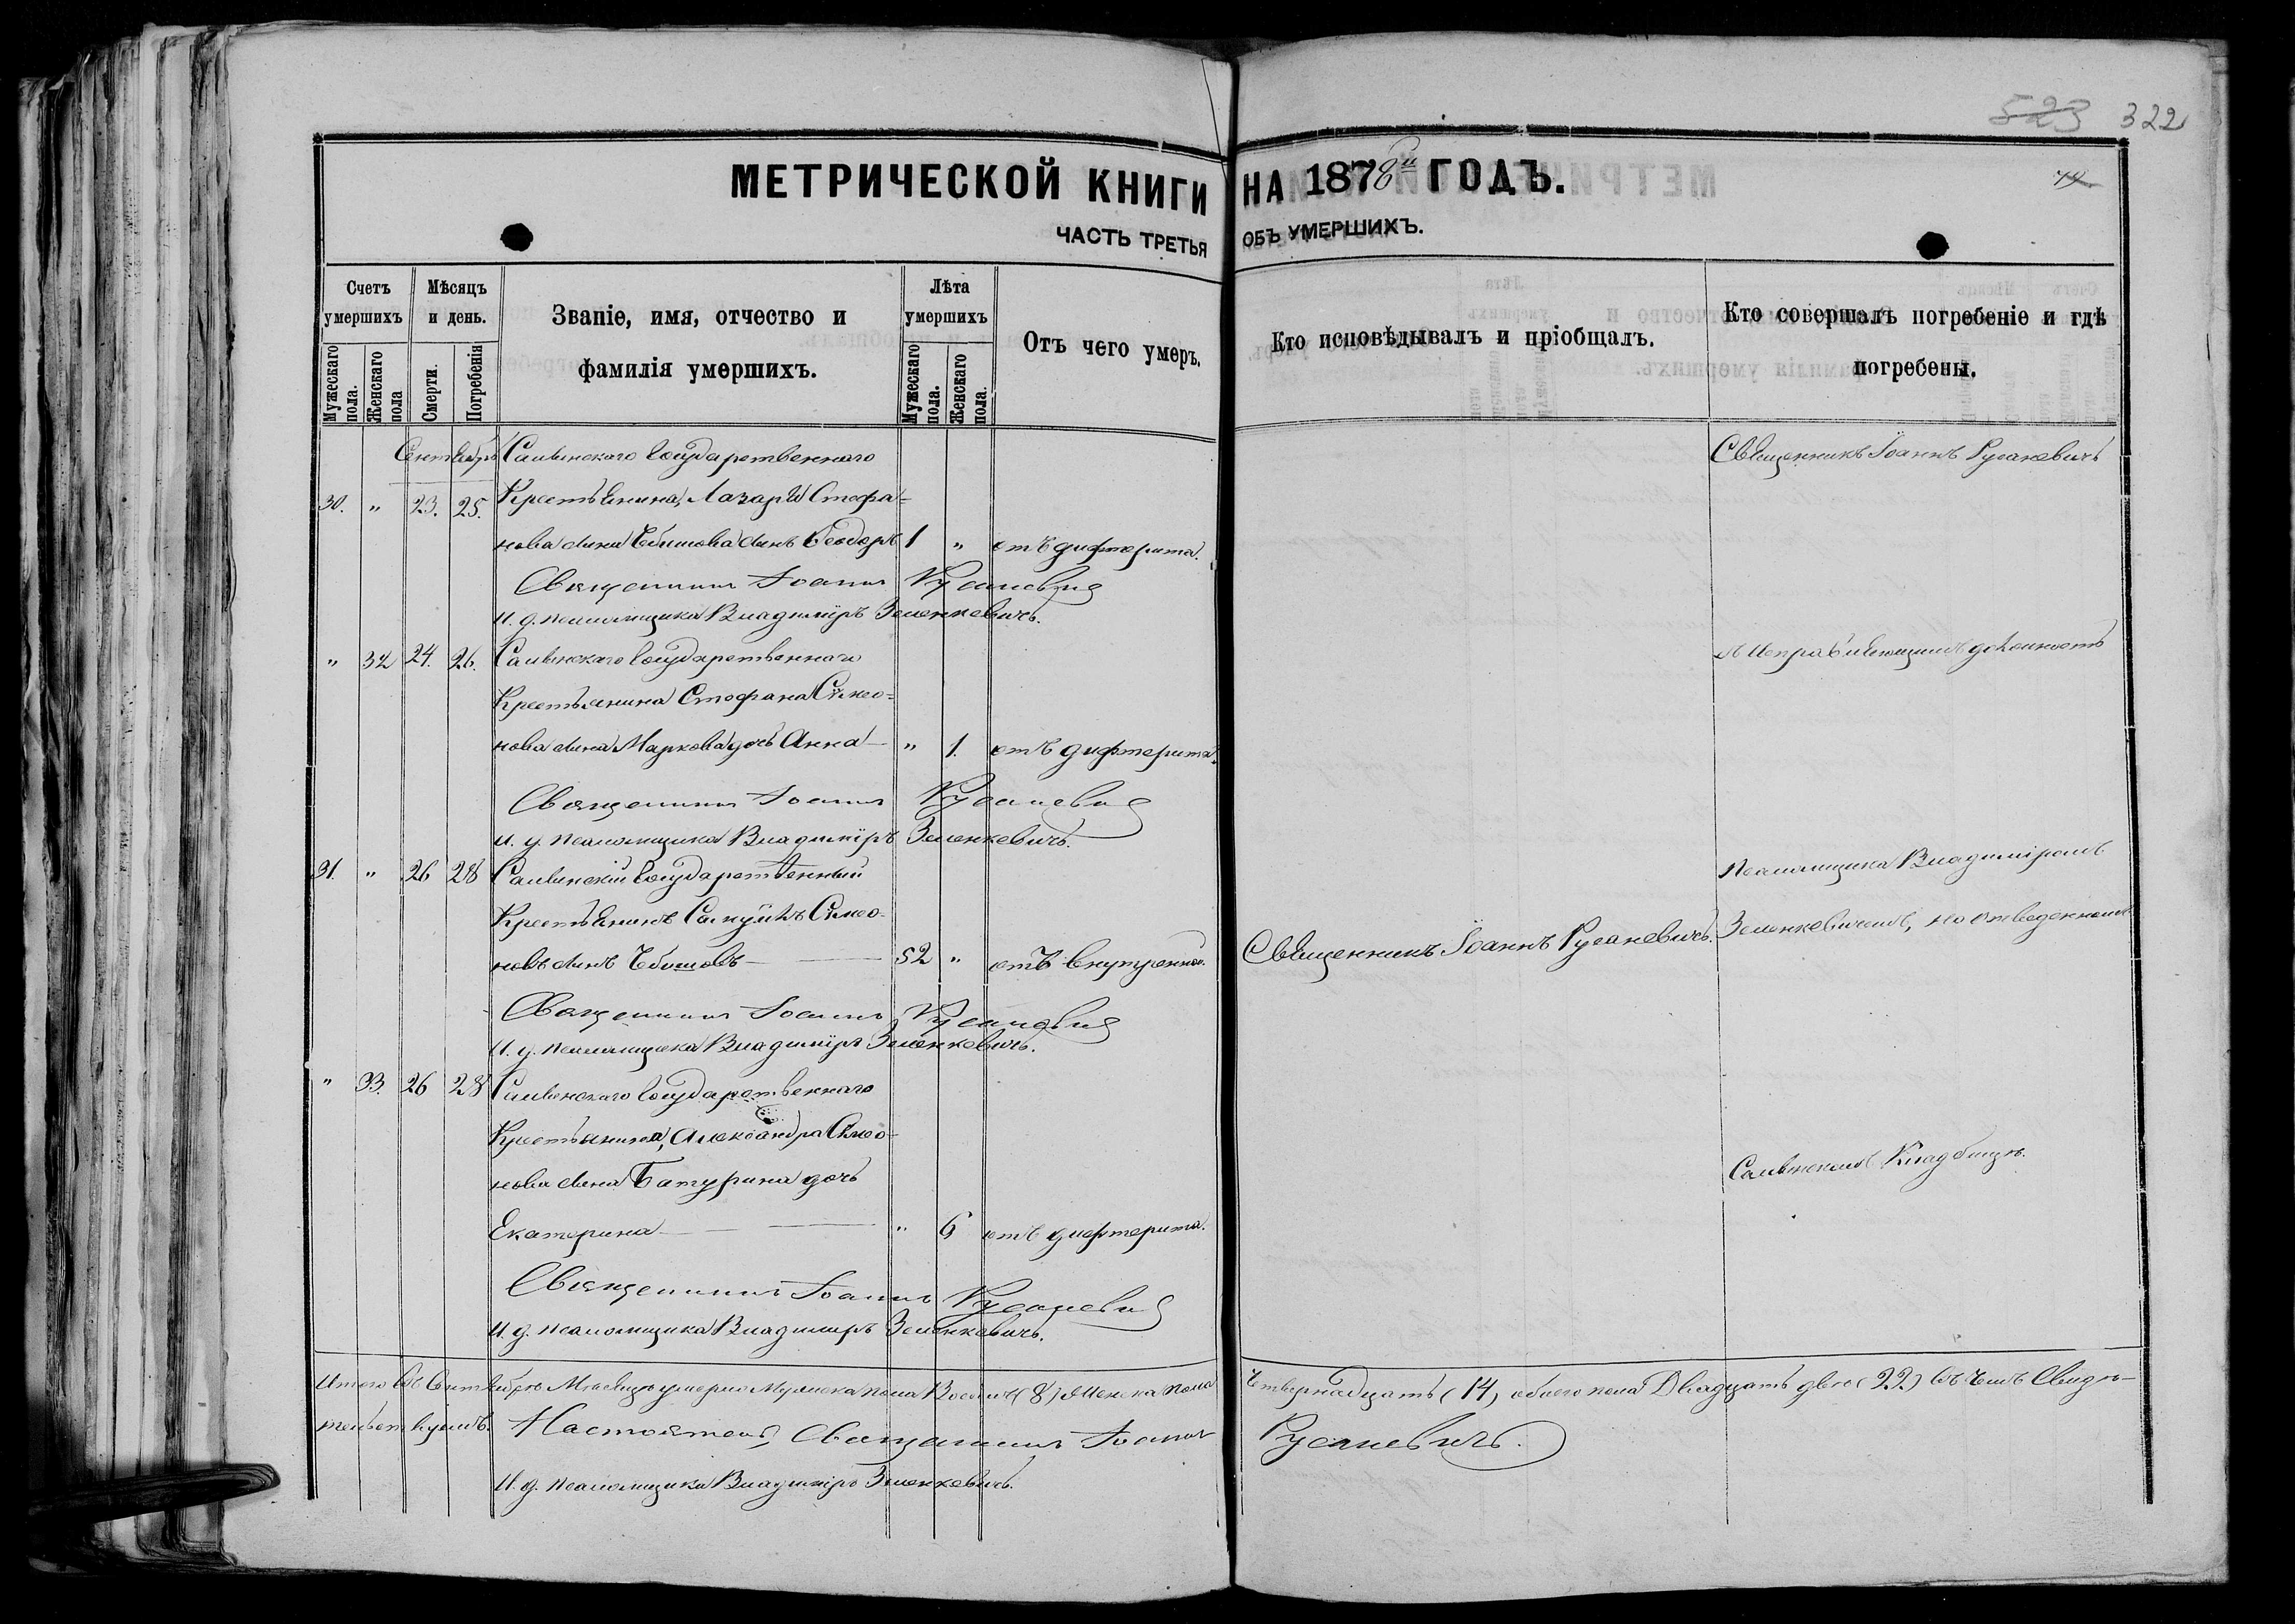 523 322
МЕТРИЧЕСКОЙ КНИГИ НА 1878й ГОДЪ.
ЧАСТЬ ТРЕТЬЯ ОБЪ УМЕРШИХЪ.
Счетъ умершихъ
Мѣсяцъ и день.
Званіе, имя, отчество и фамилія умершихъ.
Лѣта умершихъ
Отъ чего умеръ.
Кто исповѣдывалъ и пріобщалъ.
Кто совершалъ погребеніе и гдѣ погребены.
Мужескаго пола.
Женскаго пола
Смерти.
Погребенія
Мужескаго пола.
Женскаго пола.
Сентябрь Государственнаго
30. " 23. 25. Крестьянина, Лазаря Стефа-
нова сына сынъ Ѳеодоръ 1 " отъ дифтерита.
Священникъ Іоаннъ Русаневичъ
И. д. псаломщика Владиміръ Зеленкевичъ.
" 32 24. 26. Государственнаго
Крестьянина Стефана Симео-
нова сына Маркова дочь Анна " 1. отъ дифтерита.
Священникъ Іоаннъ Русаневичъ
И. д. псаломщика Владиміръ Зеленкевичъ.
31. " 26 28 Государственный
Крестьянинъ Самуилъ Симео-
новъ сынъ 52 " отъ внутренной.
Священникъ Іоаннъ Русаневичъ
И. д. псаломщика Владиміръ Зеленкевичъ.
" 33. 26 28 Государственнаго
Крестьянина, Александра Симео-
нова сына Батурина дочь
Екатерина " 6 отъ дифтерита.
Священникъ Іоаннъ Русаневичъ
И. д. псаломщика Владиміръ Зеленкевичъ.
Священникъ Іоаннъ Русаневичъ.
Священникъ Іоаннъ Русаневичъ
съ Исправляющимъ должность
псаломщика Владиміромъ
Зеленкевичемъ, на отведенномъ
Кладбищѣ.
Итого въ Сентябрѣ Мѣсяцѣ умерло Мужеска пола Восемь (8) Женска пола Четвернадцать (14), обоего пола Двадцать двое (22) въ чемъ Свидѣ-
тельствуемъ. Настоятель, Священникъ Іоаннъ Русаневичъ.
И. д. псаломщика Владиміръ Зеленкевичъ.